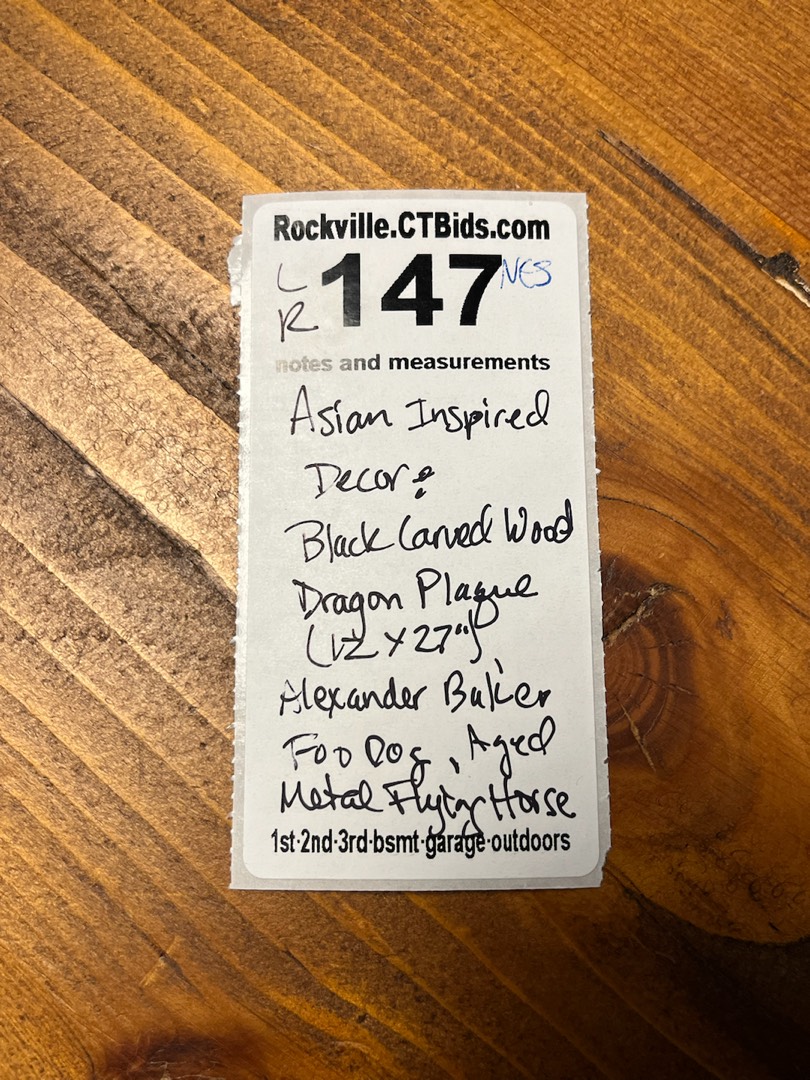 Rockville.CTBids.com
LR 147 NES
notes and measurements
Asian Inspired
Decor:
Black Carved Wood
Dragon Plaque
(12 x 27"),
Alexander Baker
Foo Dog, Aged
Metal Flying Horse
1st·2nd·3rd·bsmt·garage·outdoors